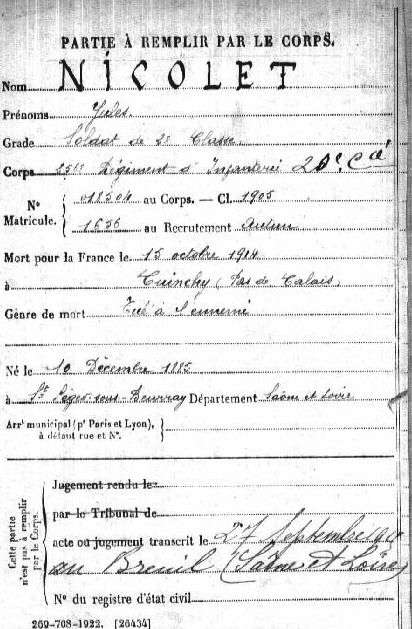 PARTIE À REMPLIR PAR LE CORPS.
Nom NICOLET
Prénoms Jules
Grade Soldat de 2e Classe
Corps Régiment d' Infanterie
N° Matricule. { 011304 au Corps. — Cl. 1905
1636 au Recrutement Autun
Mort pour la France le 15 octobre 1914
à Cuinchy (Pas de Calais)
Genre de mort Tué à l'ennemi
Né le 10 Décembre 1885
à St Léger-sous-Beuvray Département Saône et Loire
Arrt municipal (pr Paris et Lyon), à défaut rue et N°. }
Cette partie n'est pas à remplir par le Corps.
Jugement rendu le
par le Tribunal de
acte ou jugement transcrit le 27 Septembre
au Breuil (Saône et Loire)
N° du registre d'état civil
269-708-1922. [26434]